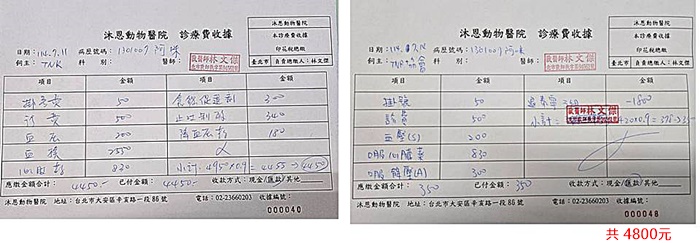 沐恩動物醫院 診療費收據
沐恩動物醫院
本診療費收據
印花稅總繳
日期：114.9.11 病歷號碼：1301009 阿咪
飼主：TNR 科別： 醫師：獸醫師林文傑
臺北市 負責總繳人：林文傑
項目 金額 項目 金額
掛號費 50 食慾促進劑 300
診費 50 止吐制酸 340
血壓 200 降血壓 180
血檢 2550
830 小計：4950×0.9=4455→4450
應繳金額合計：4450.- 已付金額：4450.- 收款方式：現金/匯款/其他
沐恩動物醫院 地址：台北市大安區辛亥路一段86號 電話：02-23660203 收據編號：
000040
沐恩動物醫院 診療費收據
沐恩動物醫院
本診療費收據
印花稅總繳
日期： 病歷號碼：1301009 阿咪
飼主：TNR協會 科別： 醫師：獸醫師林文傑
臺北市 負責總繳人：林文傑
項目 金額 項目 金額
掛號 50 -1800
診費 50 小計：
血壓(S) 200
830
300
應繳金額合計：350 已付金額：350 收款方式：現金/匯款/其他
沐恩動物醫院 地址：台北市大安區辛亥路一段86號 電話：02-23660203 收據編號：
000048
共 4800元